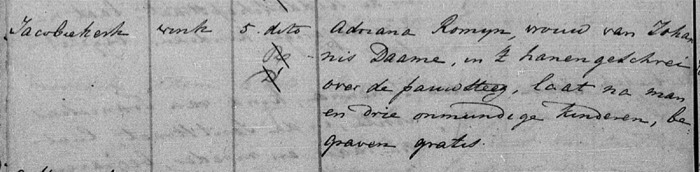 Jacobikerk wink 5. dito Adriana Romijn, vrouw van Johan
nis Daame, in 't hanengeschrei
over de pauwsteeg, laat na man
en drie onmundige kinderen, be
graven gratis.